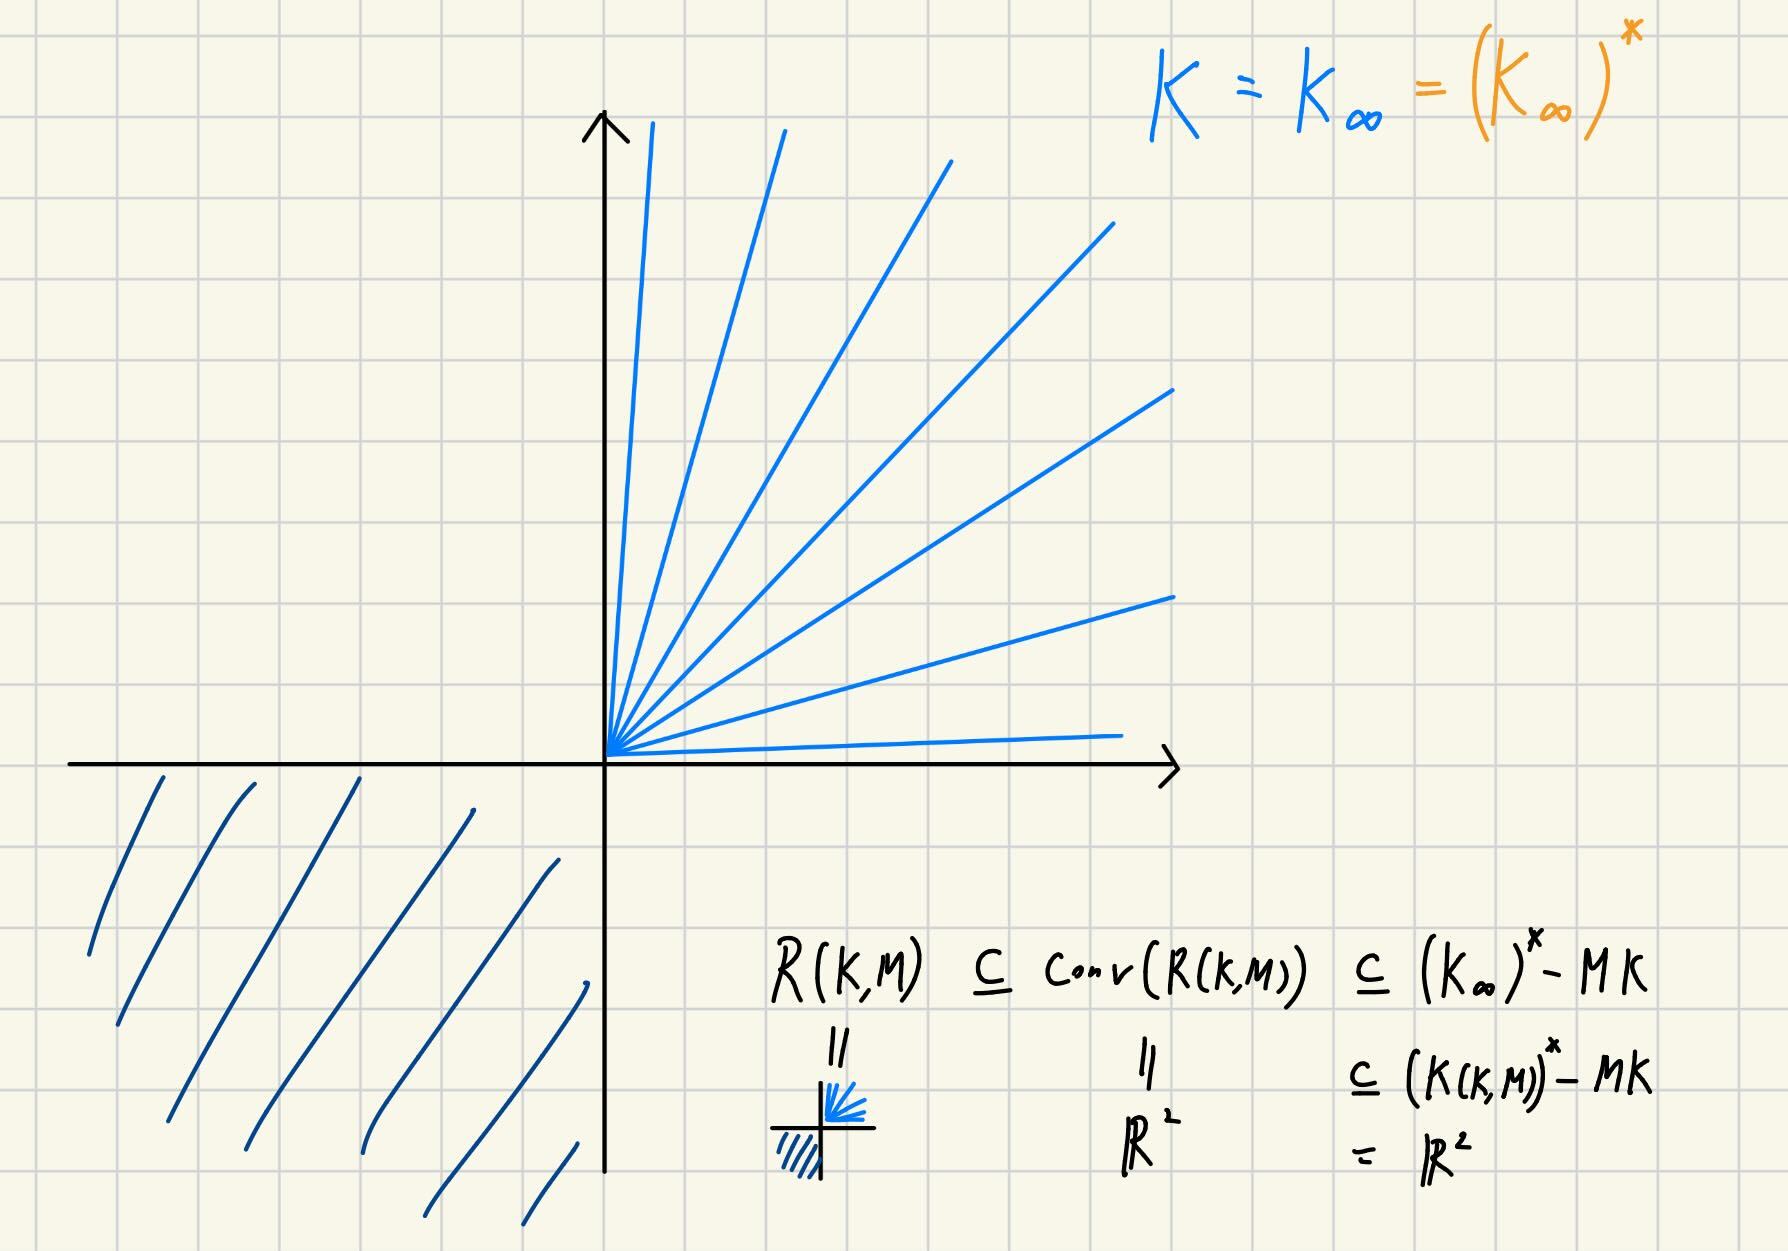 K = K∞ = (K∞)*
R(K,M) ⊆ Conv(R(K,M)) ⊆ (K∞)* - MK
= = ⊆ (K(K,M))* - MK
ℝ² = ℝ²